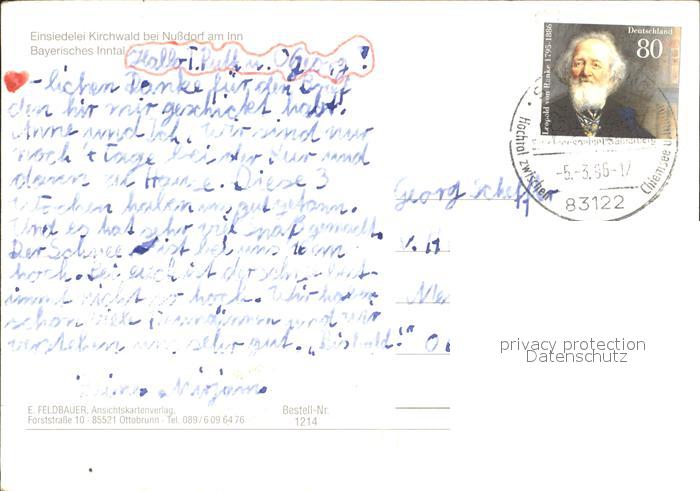 Einsiedelei Kirchwald bei Nußdorf am Inn
Bayerisches Inntal
Hallo T. Ruth u. O Georg!
-lichen Danke für den Brief
den hir mir geschickt habt.
Anne und ich. Wir sind nur
noch 4 Tage bei der Kur und
dann zu Hause. Diese 3
Wochen haben uns gut getan.
Und es hat sehr viel Spaß gemacht.
Der Schnee ist bei uns 10 cm
hoch. Bei euch ist der schnee best-
immt nicht so hoch. Wir haben
schon viele Freundinnen und wir
verstehen uns sehr gut. „Bis bald!"
Deine Mirjam
Georg Scheffer
E. FELDBAUER, Ansichtskartenverlag,
Forststraße 10 - 85521 Ottobrunn - Tel. 089/6 09 64 76
Bestell-Nr.
1214
Deutschland
80
Leopold von Ranke 1795-1886
Hochtal zwischen Chiemsee und
-5.-3.96-17
83122
privacy protection
Datenschutz